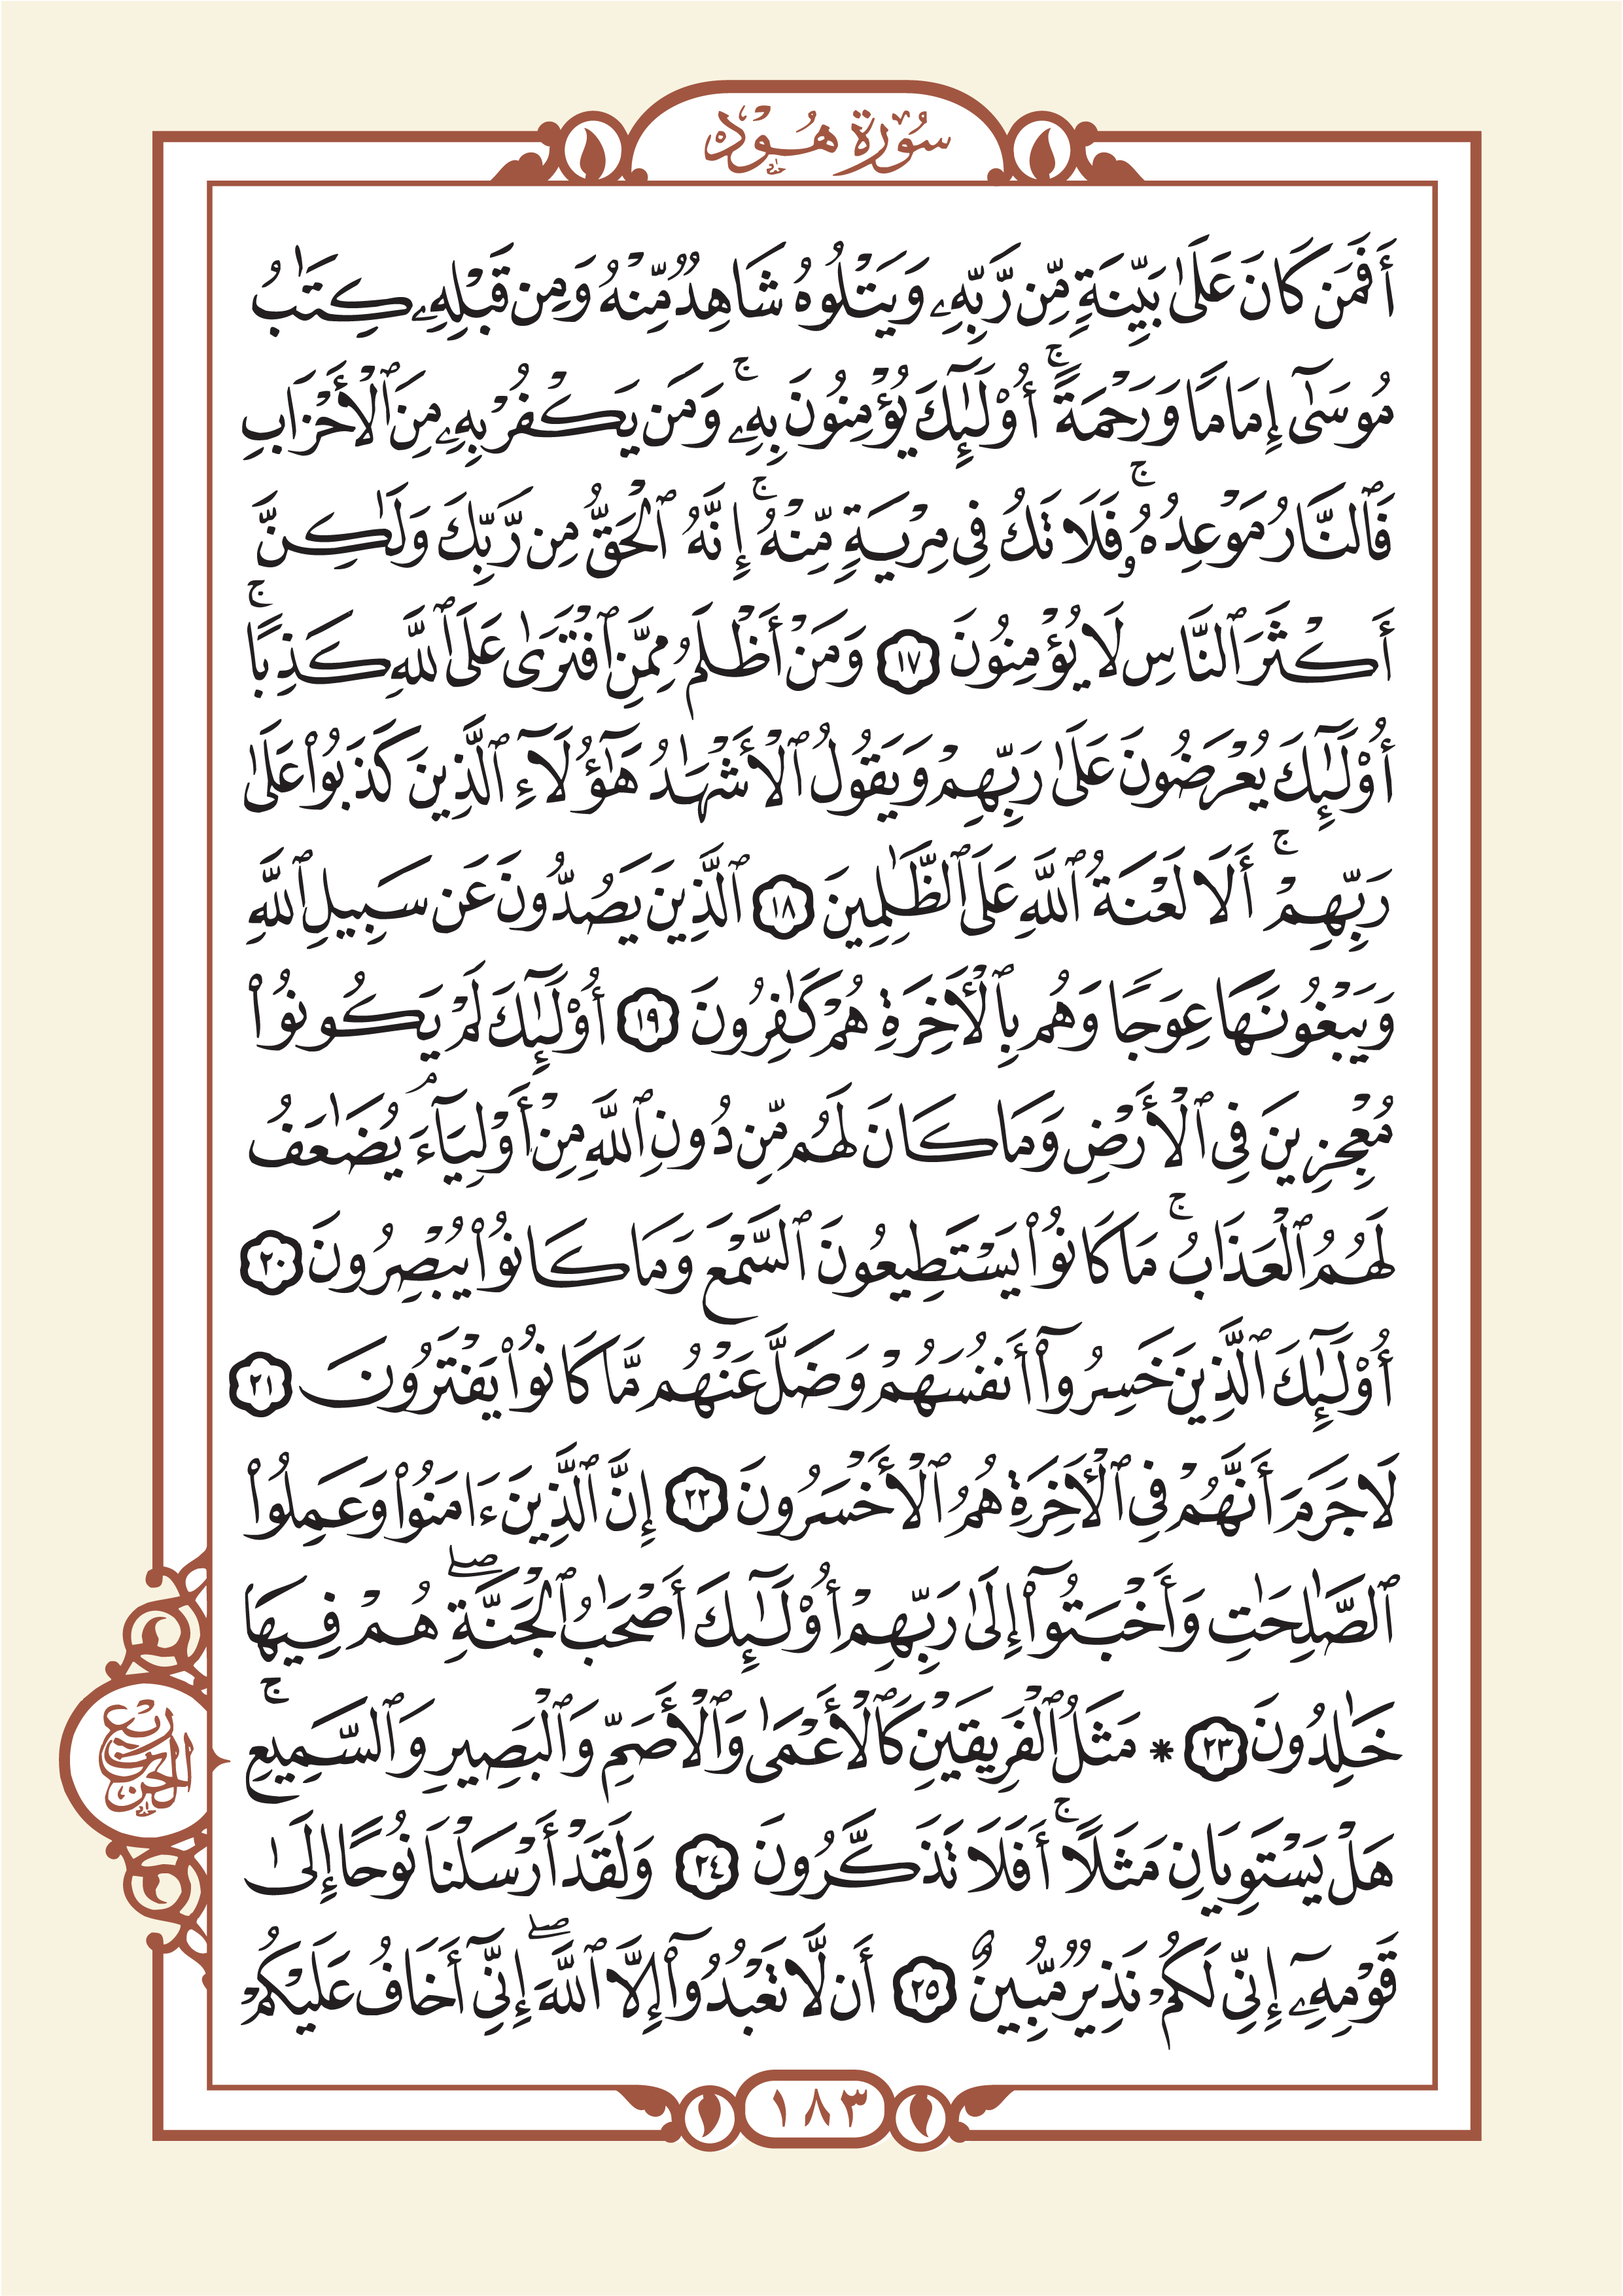 سُورَةُ هُود
أَفَمَن كَانَ عَلَىٰ بَيِّنَةٍ مِّن رَّبِّهِۦ وَيَتْلُوهُ شَاهِدٌ مِّنْهُ وَمِن قَبْلِهِۦ كِتَٰبُ
مُوسَىٰٓ إِمَامًا وَرَحْمَةً ۚ أُو۟لَٰٓئِكَ يُؤْمِنُونَ بِهِۦ ۚ وَمَن يَكْفُرْ بِهِۦ مِنَ ٱلْأَحْزَابِ
فَٱلنَّارُ مَوْعِدُهُۥ ۚ فَلَا تَكُ فِى مِرْيَةٍ مِّنْهُ ۚ إِنَّهُ ٱلْحَقُّ مِن رَّبِّكَ وَلَٰكِنَّ
أَكْثَرَ ٱلنَّاسِ لَا يُؤْمِنُونَ ١٧ وَمَنْ أَظْلَمُ مِمَّنِ ٱفْتَرَىٰ عَلَى ٱللَّهِ كَذِبًا ۚ
أُو۟لَٰٓئِكَ يُعْرَضُونَ عَلَىٰ رَبِّهِمْ وَيَقُولُ ٱلْأَشْهَٰدُ هَٰٓؤُلَآءِ ٱلَّذِينَ كَذَبُوا۟ عَلَىٰ
رَبِّهِمْ ۚ أَلَا لَعْنَةُ ٱللَّهِ عَلَى ٱلظَّٰلِمِينَ ١٨ ٱلَّذِينَ يَصُدُّونَ عَن سَبِيلِ ٱللَّهِ
وَيَبْغُونَهَا عِوَجًا وَهُم بِٱلْءَاخِرَةِ هُمْ كَٰفِرُونَ ١٩ أُو۟لَٰٓئِكَ لَمْ يَكُونُوا۟
مُعْجِزِينَ فِى ٱلْأَرْضِ وَمَا كَانَ لَهُم مِّن دُونِ ٱللَّهِ مِنْ أَوْلِيَآءَ ۘ يُضَٰعَفُ
لَهُمُ ٱلْعَذَابُ ۚ مَا كَانُوا۟ يَسْتَطِيعُونَ ٱلسَّمْعَ وَمَا كَانُوا۟ يُبْصِرُونَ ٢٠
أُو۟لَٰٓئِكَ ٱلَّذِينَ خَسِرُوٓا۟ أَنفُسَهُمْ وَضَلَّ عَنْهُم مَّا كَانُوا۟ يَفْتَرُونَ ٢١
لَا جَرَمَ أَنَّهُمْ فِى ٱلْءَاخِرَةِ هُمُ ٱلْأَخْسَرُونَ ٢٢ إِنَّ ٱلَّذِينَ ءَامَنُوا۟ وَعَمِلُوا۟
ٱلصَّٰلِحَٰتِ وَأَخْبَتُوٓا۟ إِلَىٰ رَبِّهِمْ أُو۟لَٰٓئِكَ أَصْحَٰبُ ٱلْجَنَّةِ ۖ هُمْ فِيهَا
خَٰلِدُونَ ٢٣ * مَثَلُ ٱلْفَرِيقَيْنِ كَٱلْأَعْمَىٰ وَٱلْأَصَمِّ وَٱلْبَصِيرِ وَٱلسَّمِيعِ ۚ
رُبْعُ الْحِزْبِ
هَلْ يَسْتَوِيَانِ مَثَلًا ۚ أَفَلَا تَذَكَّرُونَ ٢٤ وَلَقَدْ أَرْسَلْنَا نُوحًا إِلَىٰ
قَوْمِهِۦٓ إِنِّى لَكُمْ نَذِيرٌ مُّبِينٌ ٢٥ أَن لَّا تَعْبُدُوٓا۟ إِلَّا ٱللَّهَ ۖ إِنِّىٓ أَخَافُ عَلَيْكُمْ
١٨٣